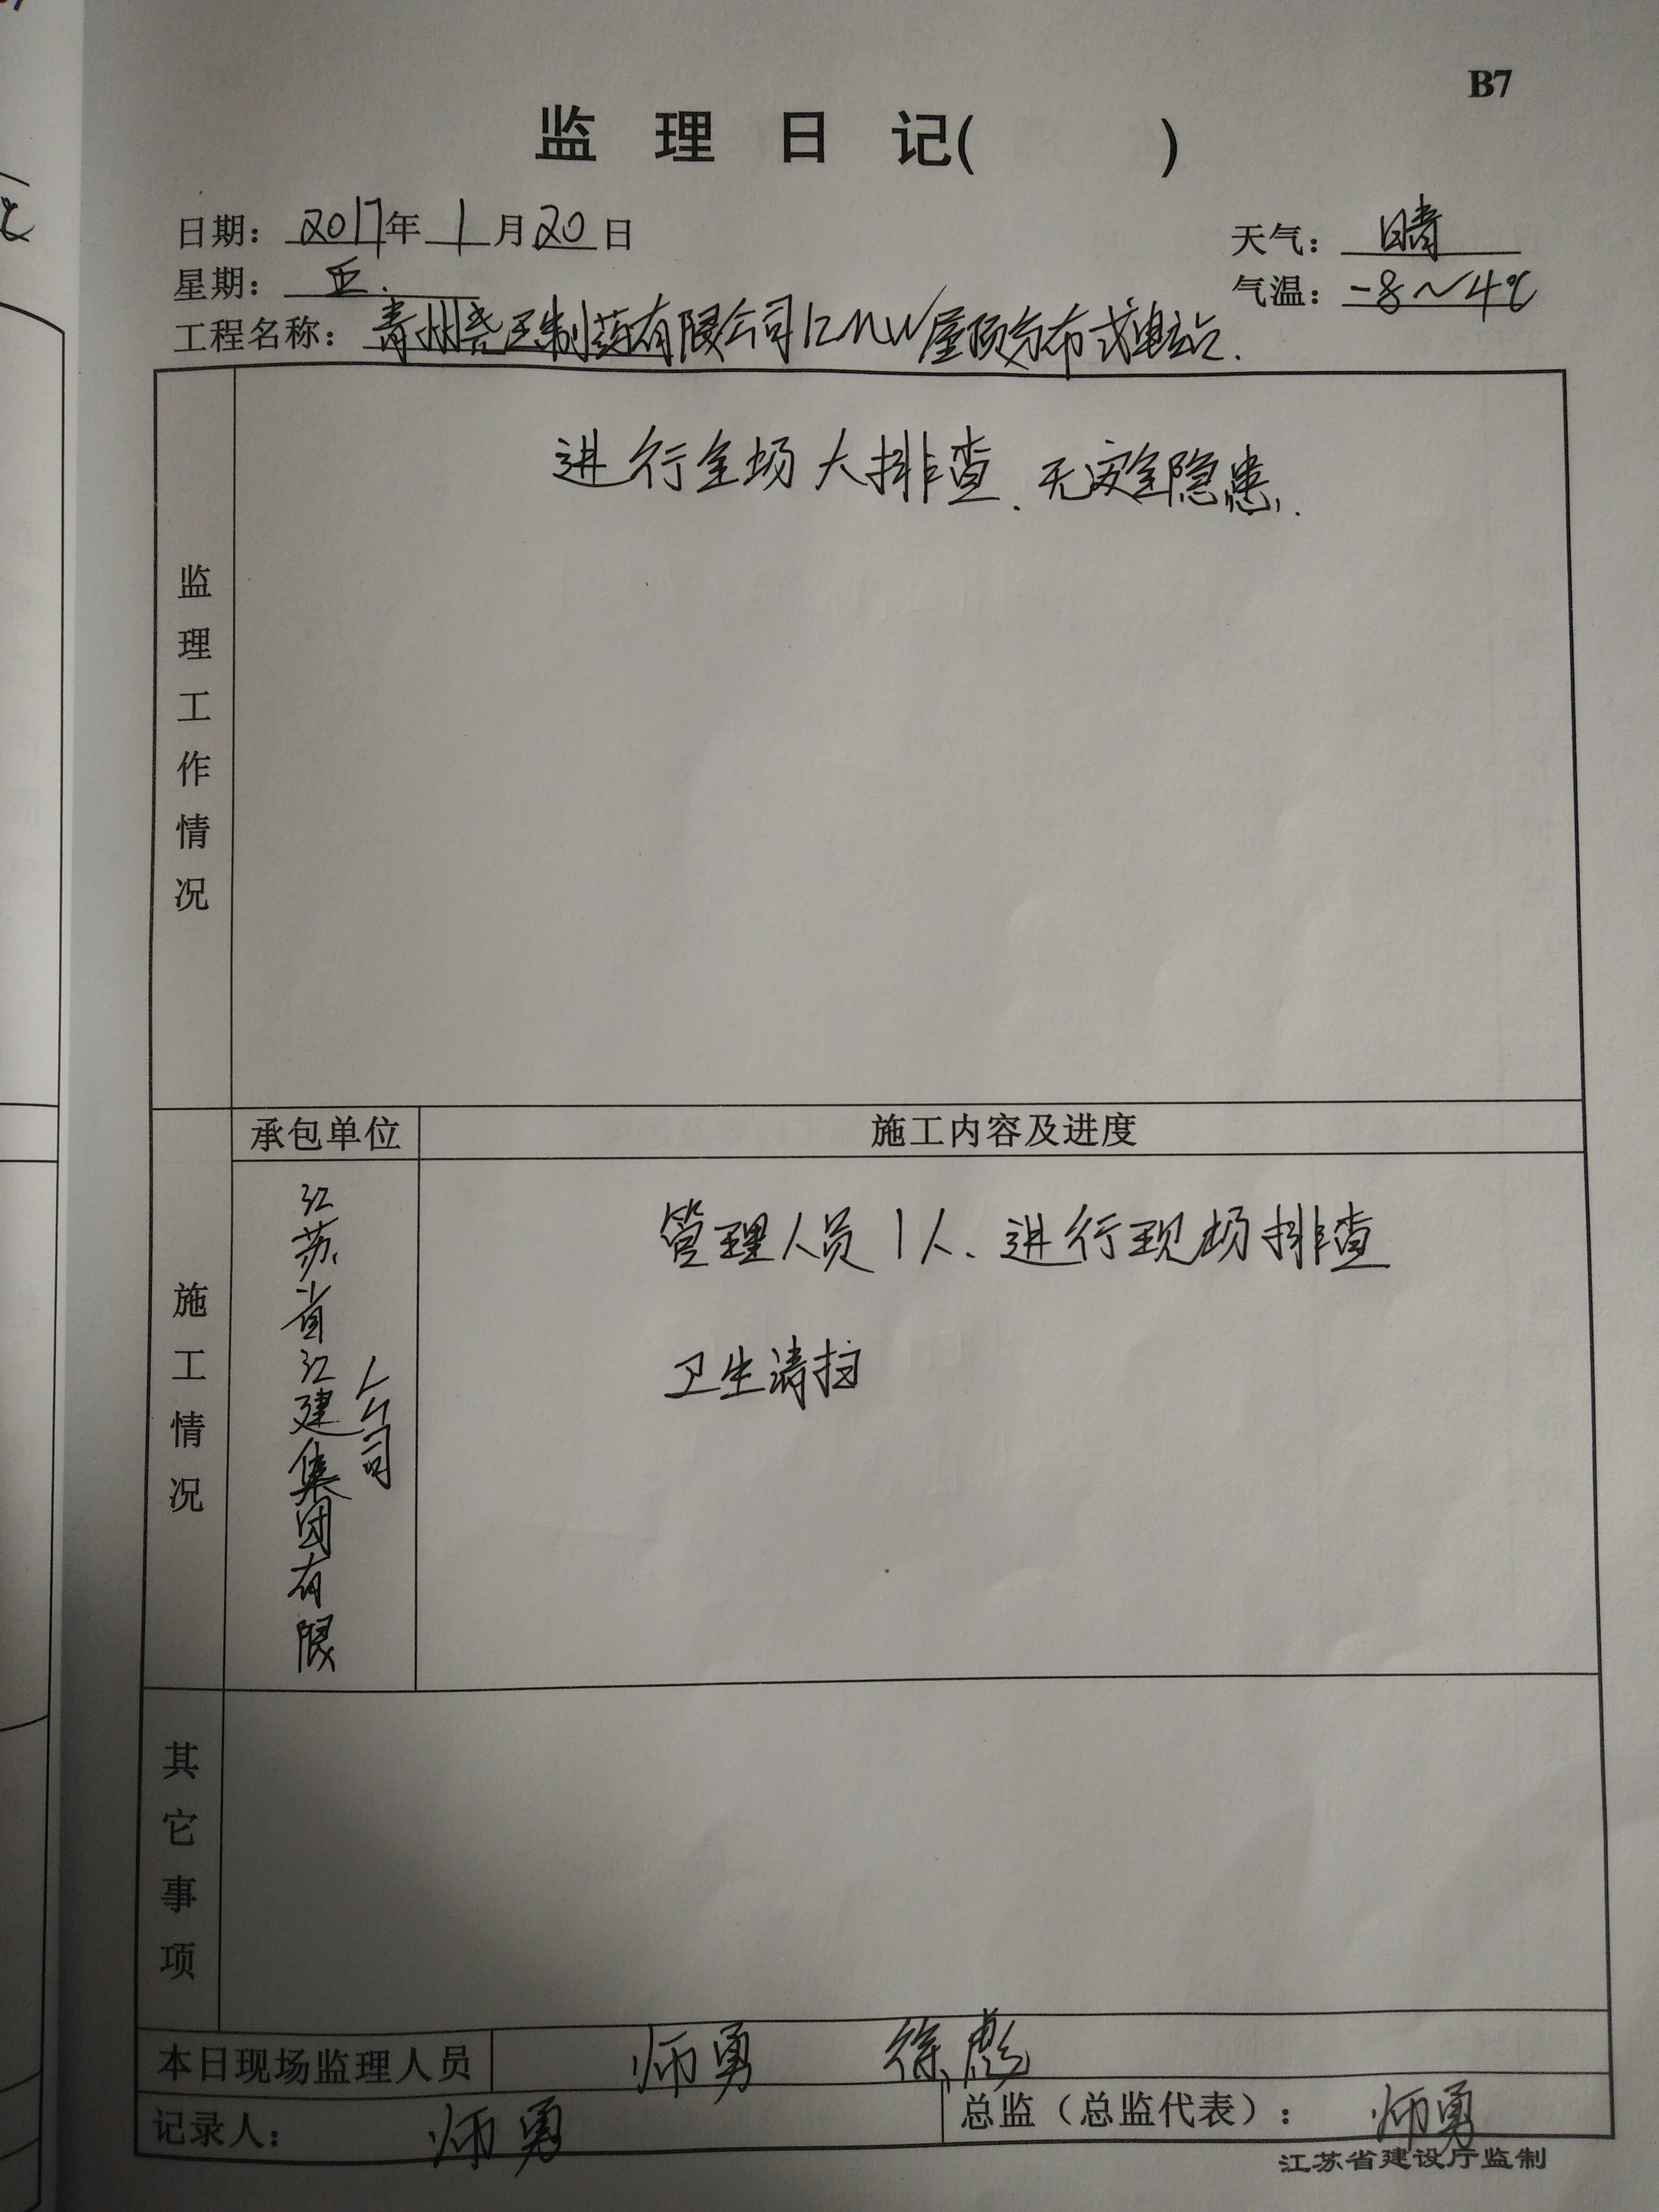 B7
监 理 日 记( )
日期：2017年 1 月 20 日
天气：晴
星期：五.
气温：-8～4℃
工程名称：青州尧王制药有限公司12MW屋顶分布式电站.
监理工作情况
进行全场大排查.无安全隐患.
施工情况
承包单位
施工内容及进度
江苏省江建集团有限
公司
管理人员1人.进行现场排查
卫生清扫
其它事项
本日现场监理人员 师勇 徐彪
记录人：师勇
总监（总监代表）：师勇
江苏省建设厅监制